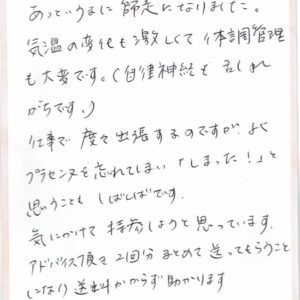 あっというまに師走になりました。
気温の変化も激しくて体調管理
も大変です。(自律神経も乱れ
がちです。)
仕事で度々出張するのですが、よく
プラセンタを忘れてしまい「しまった!」と
思うことも しばしばです。
気にかけて持参しようと思っています。
アドバイス頂き2回分まとめて送ってもらうこと
になり送料かからず助かります